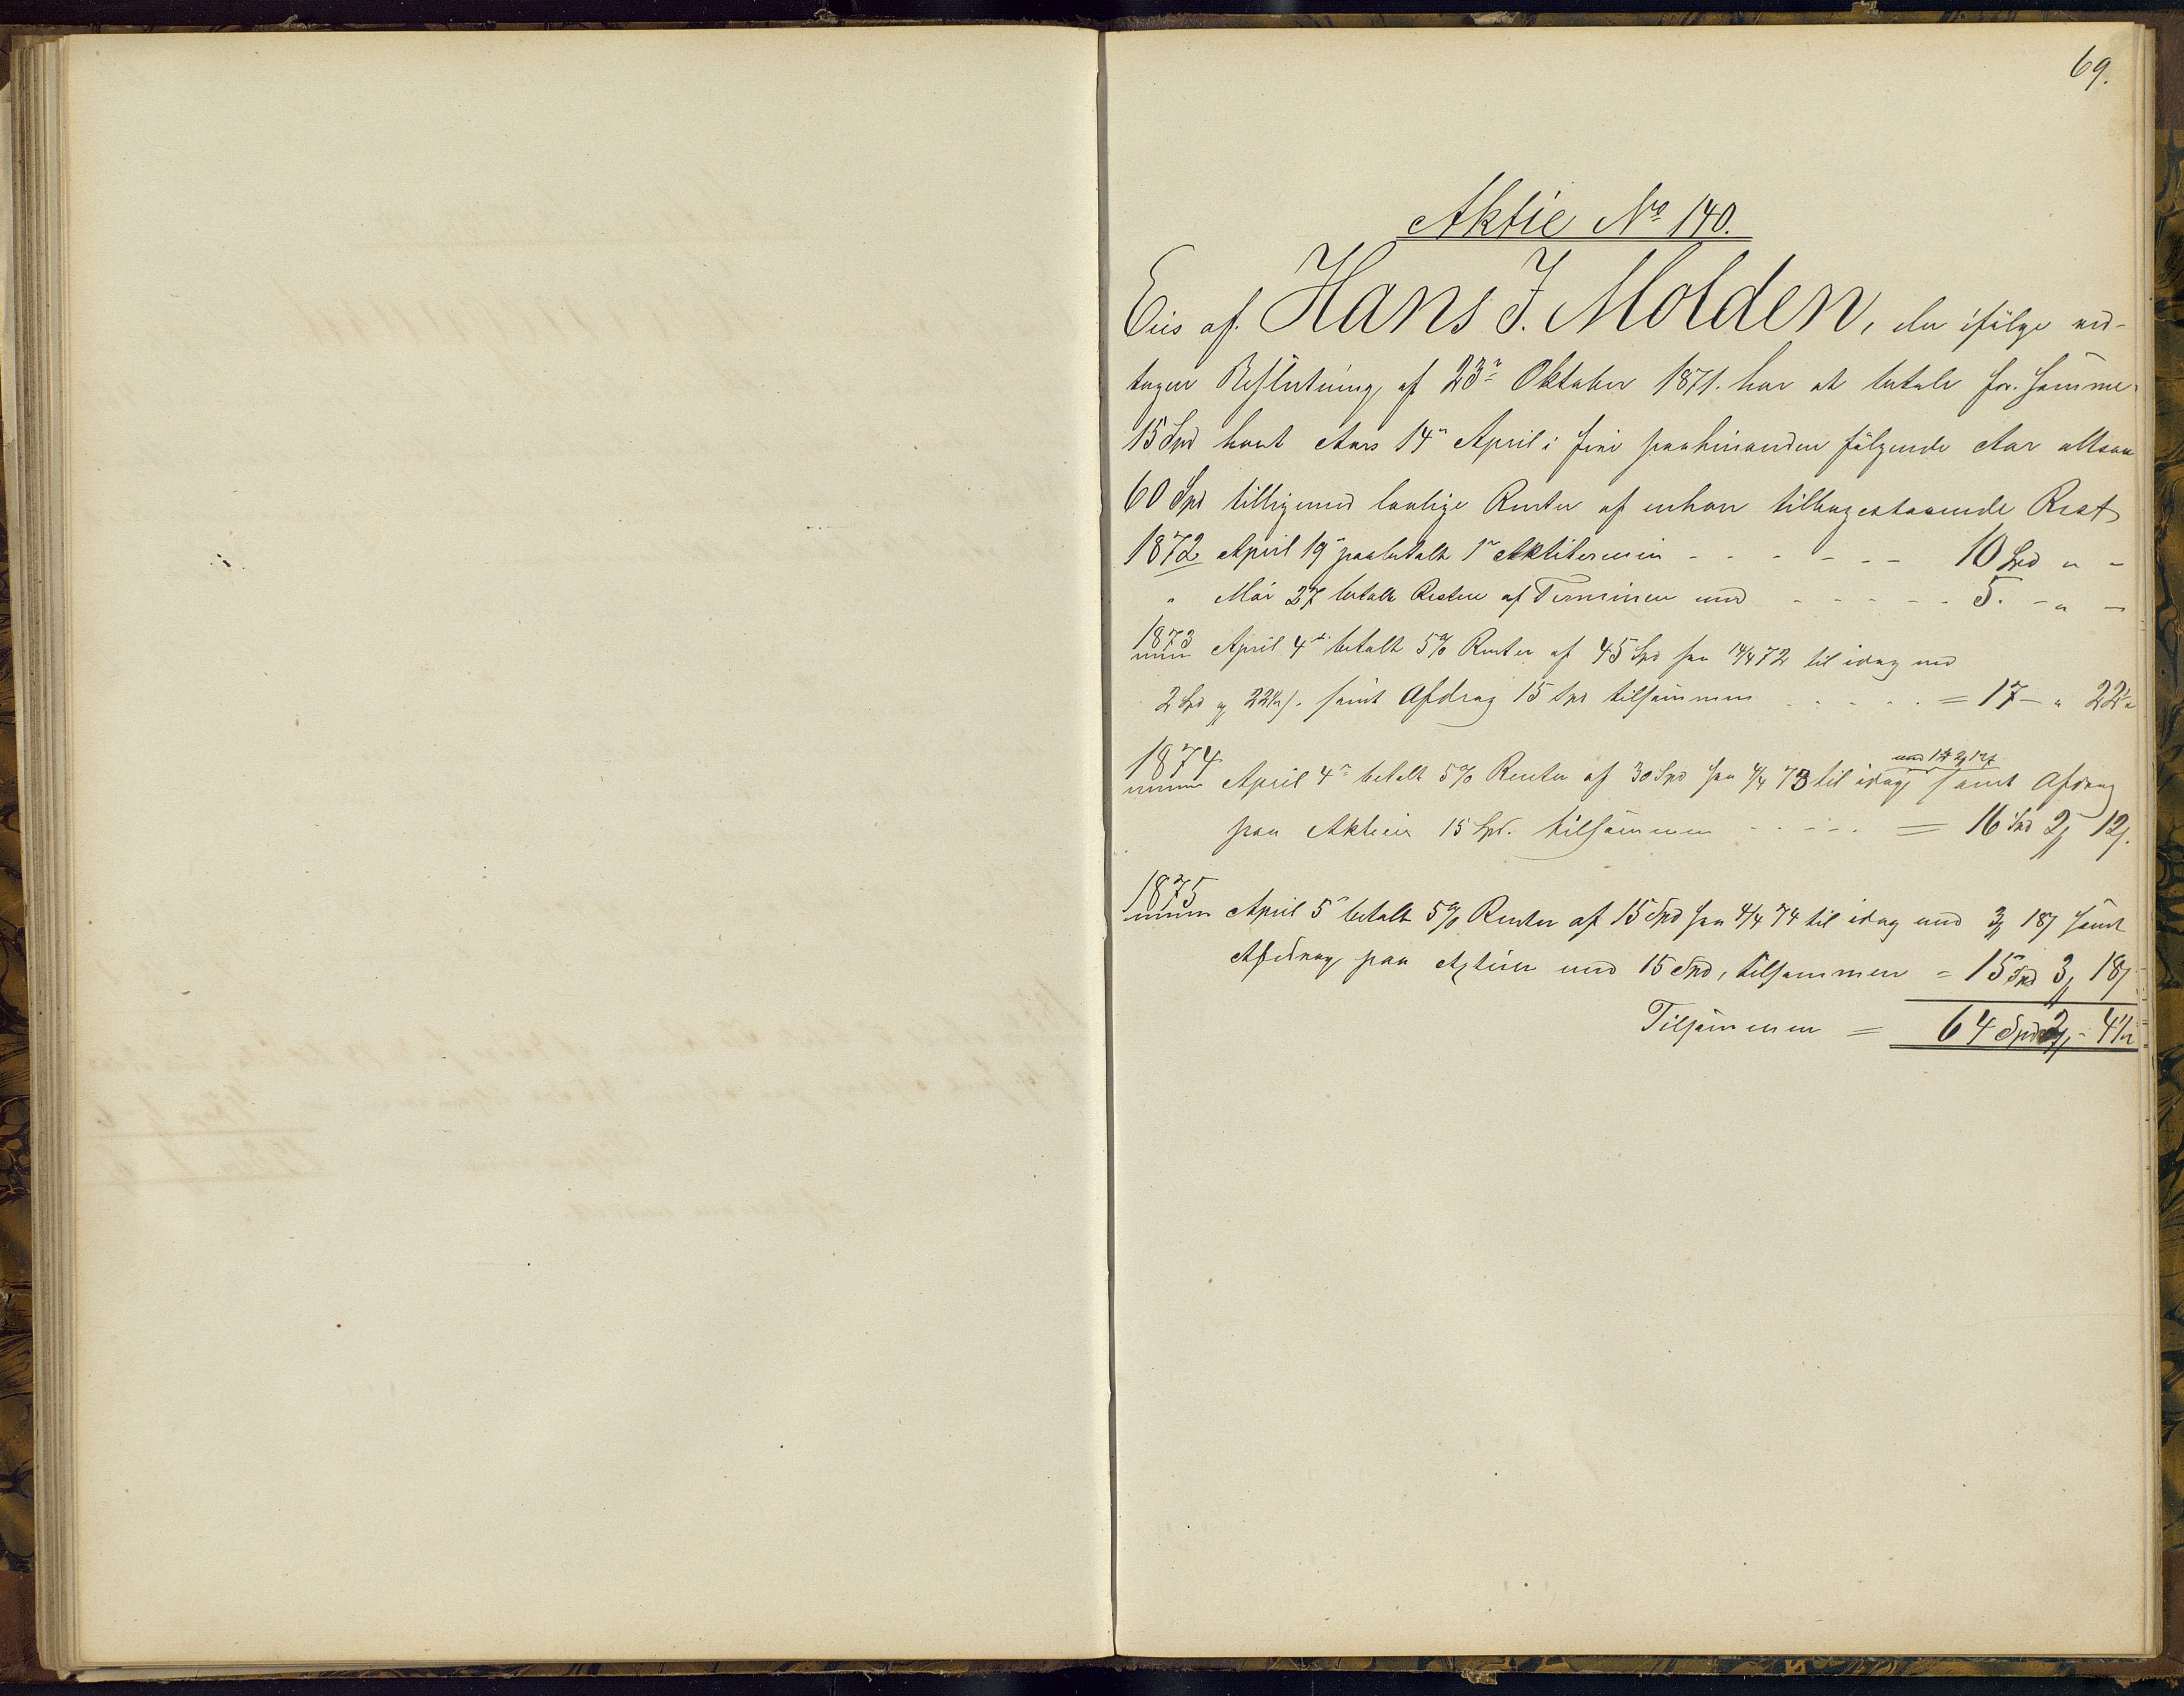 69.
Aktie No 140.
Eies af Hans J. Molden, der ifølge ved-
tagen Beslutning af 23de Oktober 1871. har at betale for samme
15 Spd hvert Aars 14de April i fire paahinanden følgende Aar altsaa
60 Spd tilligemed lovlige Renter af enhver tilbagestaaende Rest
1872 April 19 paabetalt 1ste Aktietermin - - - - - - 10 Spd " -
" Mai 27 betalt Resten af Terminen med - - - - - - 5. - " -
1873 April 4de betalt 5% Renter af 45 Spd fra 14/4 72 til idag med
2 Spd og 22½ s. samt Afdrag 15 Spd tilsammen . . . . . = 17 - " 22½
med 1 2 12
1874 April 4de betalt 5% Renter af 30 Spd fra 4/4 73 til idag, samt Afdrag
paa Aktien 15 Spd. tilsammen - - - - = 16 Spd 2 12
1875 April 5 betalt 5% Renter af 15 Spd fra 4/4 74 til idag med 3 18 samt
Afdrag paa Actien med 15 Spd, tilsammen = 15 Spd 3 18
Tilsammen = 64 Spd 2 - 4½